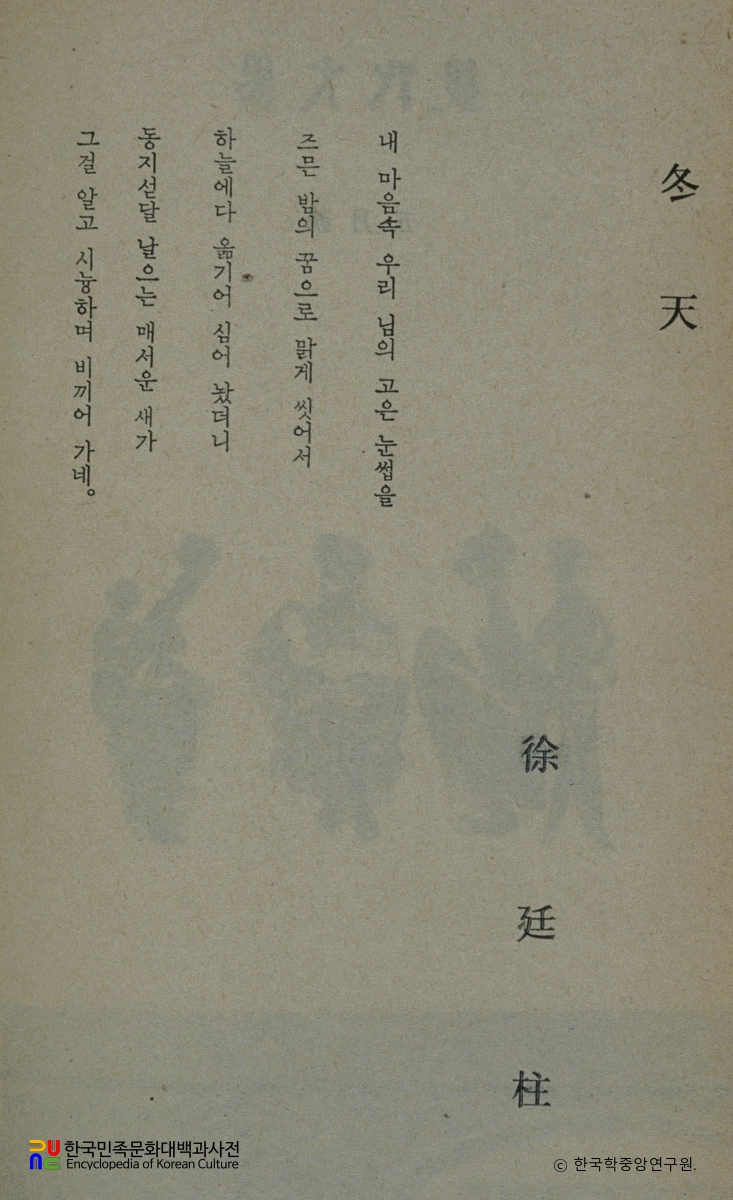 冬天
徐廷柱
내 마음속 우리 님의 고은 눈썹을
즈믄 밤의 꿈으로 맑게 씻어서
하늘에다 옮기어 심어 놨더니
동지섣달 날으는 매서운 새가
그걸 알고 시늉하며 비끼어 가네。
한국민족문화대백과사전
Encyclopedia of Korean Culture
ⓒ 한국학중앙연구원.